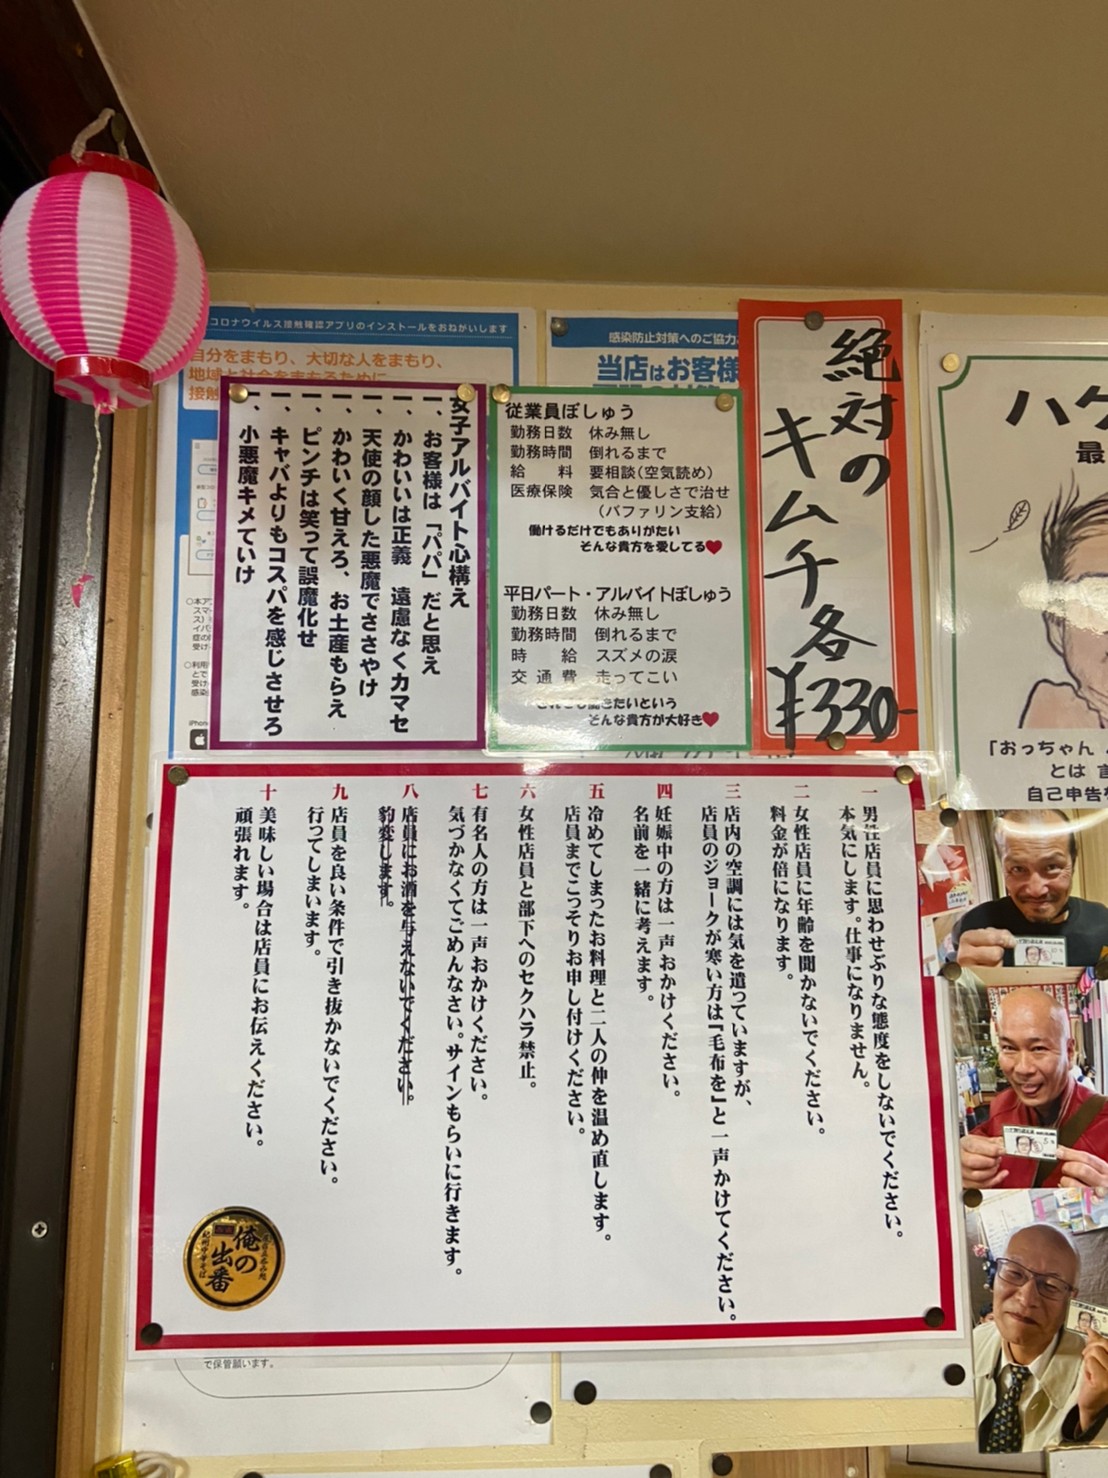 コロナウイルス接触確認アプリのインストールをおねがいします
自分をまもり、大切な人をまもり、
地域と社会をまもるために
接触
感染防止対策へのご協力
当店はお客様
女子アルバイト心構え
一、お客様は「パパ」だと思え
一、かわいいは正義　遠慮なくカマせ
一、天使の顔した悪魔でささやけ
一、かわいく甘えろ、お土産もらえ
一、ピンチは笑って誤魔化せ
一、キャバよりもコスパを感じさせろ
一、小悪魔キメていけ
従業員ぼしゅう
勤務日数　休み無し
勤務時間　倒れるまで
給　　料　要相談（空気読め）
医療保険　気合と優しさで治せ
（バファリン支給）
働けるだけでもありがたい
そんな貴方を愛してる♥
平日パート・アルバイトぼしゅう
勤務日数　休み無し
勤務時間　倒れるまで
時　　給　スズメの涙
交 通 費　走ってこい
それでも働きたいという
そんな貴方が大好き♥
絶対の
キムチ各
¥330-
ハゲ
最
「おっちゃん
とは 言
自己申告
一 男性店員に思わせぶりな態度をしないでください。
本気にします。仕事になりません。
二 女性店員に年齢を聞かないでください。
料金が倍になります。
三 店内の空調には気を遣っていますが、
店員のジョークが寒い方は『毛布を』と一声かけてください。
四 妊娠中の方は一声おかけください。
名前を一緒に考えます。
五 冷めてしまったお料理と二人の仲を温め直します。
店員までこっそりお申し付けください。
六 女性店員と部下へのセクハラ禁止。
七 有名人の方は一声おかけください。
気づかなくてごめんなさい。サインもらいに行きます。
八 店員にお酒を与えないでください。
豹変します。
九 店員を良い条件で引き抜かないでください。
行ってしまいます。
十 美味しい場合は店員にお伝えください。
頑張れます。
俺の
出番
紀州中華そば
で保管願います。